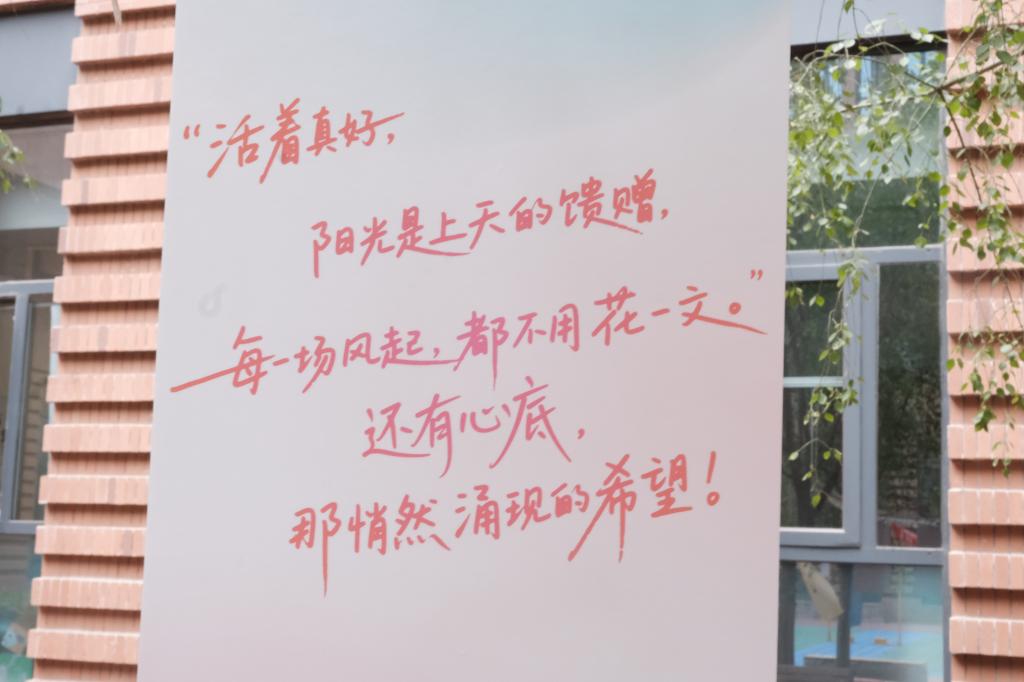 “活着真好，
阳光是上天的馈赠，
每一场风起，都不用花一文。”
还有心底，
那悄然涌现的希望！